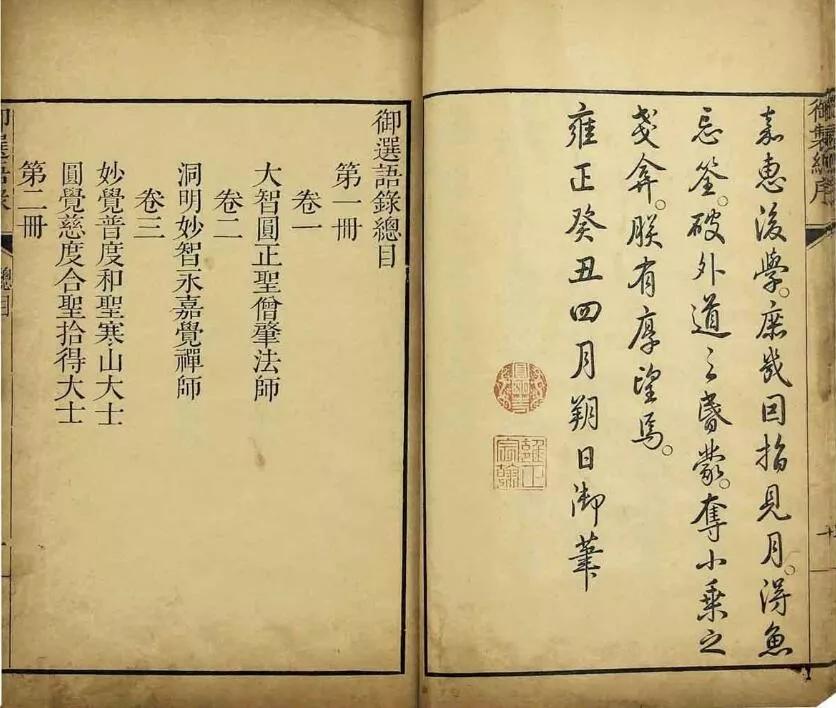 御製總序
嘉惠後學。庶幾因指見月。得魚
忘筌。破外道之昏蒙。奪小乘之
戔弁。朕有厚望焉。
雍正癸丑四月朔日御筆
圓明主人
雍正宸翰
御選語錄總目
第一冊
卷一
大智圓正聖僧肇法師
卷二
洞明妙智永嘉覺禪師
卷三
妙覺普度和聖寒山大士
圓覺慈度合聖拾得大士
第二冊
御選語錄
總目
一